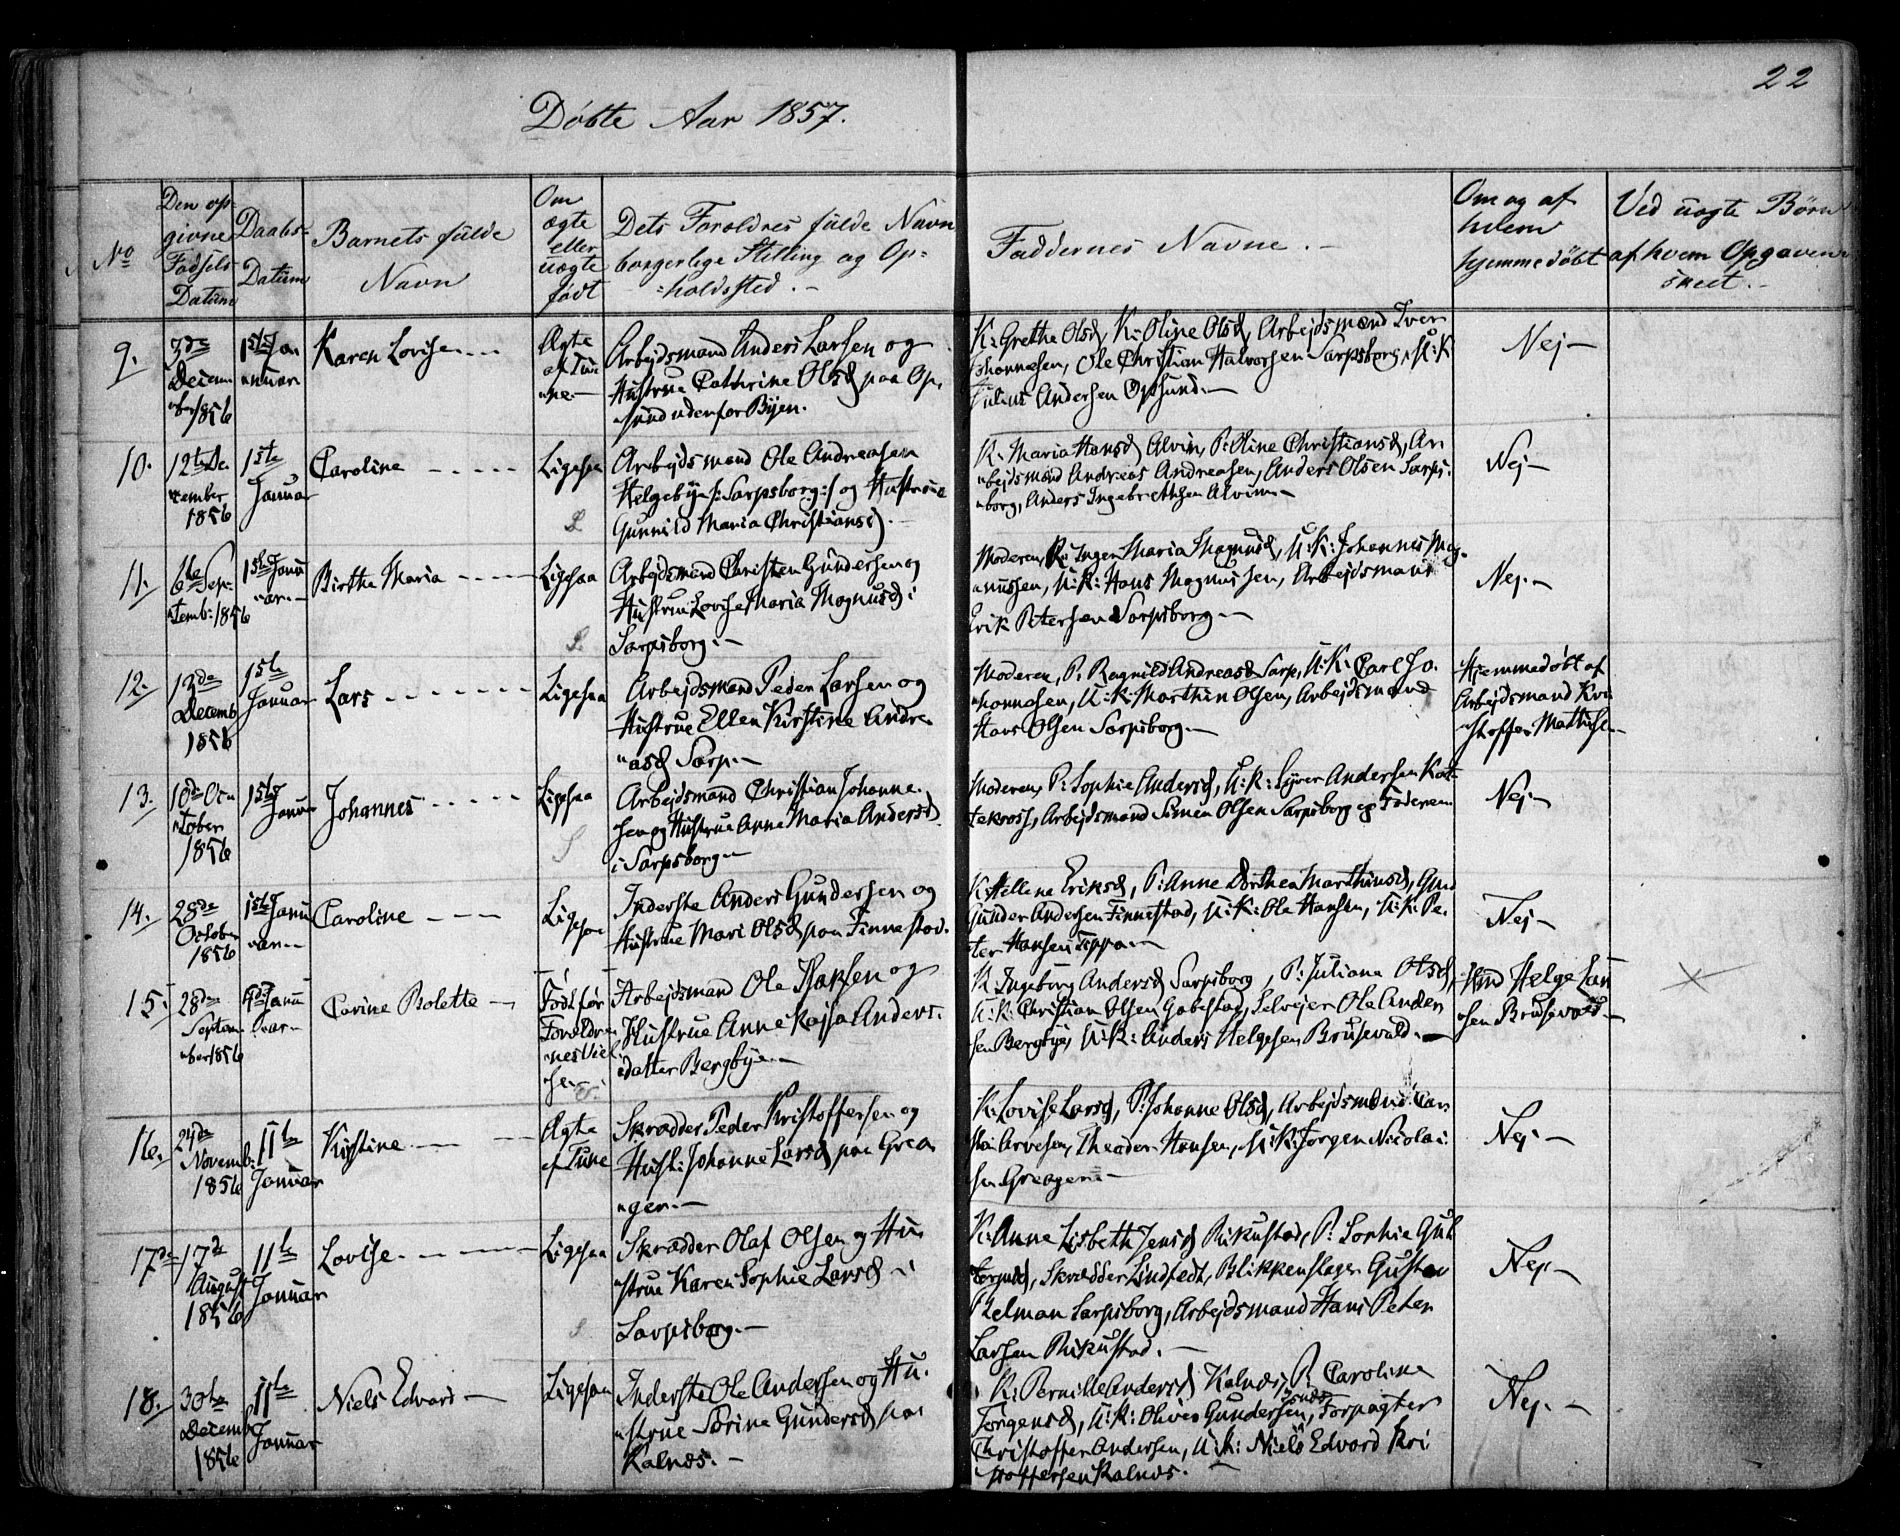 22
Döbte Aar 1857.
No
Den op-
givne
Fødsels
Datum
Daabs-
Datum
Barnets fulde
Navn
Om
ægte
eller
uægte
født
Dets Forældres fulde Navn
borgerlige Stilling og Op-
=holdssted. -
Faddernes Navne. -
Om og af
hvem
hjemmedøbt
Ved uægte Børn
af hvem Opgaven
skeet. -
9.
3de
Decem
ber 1856
1ste Jan
nuar
Karen Lovise
Ægte
af Tu
ne. -
Arbejdsmand Anders Larsen og
Hustrue Cathrine Olsd paa Op-
sund udenfor Byen.
K: Grethe Olsd, K: Oline Olsd, Arbejdsmænd Iver
Johannesen, Ole Christian Halvorsen Sarpsborg, U: K
Julius Andersen Opsund. -
Nej -
10.
12te De-
cember
1856
1ste
Januar
Caroline
Ligesaa
Arbejdsmand Ole Andreasen
Helgebye /: Sarpsborg :/ og Hustrue
Gunnild Maria Christiansd. -
K. Maria Hansd Alvim, P: Oline Christiansd, Ar-
bejdsmænd Andreas Andreasen, Anders Olsen Sarps-
borg, Anders Ingebrethsen Alvim -
Nej -
11.
6te Sep-
temb: 1856
1ste Janu
ar. -
Birthe Maria
Ligesaa
Arbejdsmand Christen Gundersen og
Hustrue Lovise Maria Magnusd i
Sarpsborg. -
Moderen, P: Inger Maria Magnusd, U: K: Johannes Mag-
nussen, U: K: Hans Magnussen, Arbejdsmand
Erik Petersen Sarpsborg. -
Nej. -
12.
13de
Decemb
1856
1ste
Januar
Lars
Ligesaa
Arbejdsmand Peder Larsen og
Hustrue Ellen Kirstine Andre-
asd Sarp. -
Moderen, P. Ragnild Andreasd Sarp, U: K: Carl Jo-
hannesen, U: K: Marthin Olsen, Arbejdsmand
Hans Olsen Sarpsborg. -
Hjemmedøbt af
Arbejdsmand Kri
stoffer Mathise
13.
10de Oc
tober
1856
1ste
Januar
Johannes
Ligesaa
Arbejdsmand Christian Johanne-
sen og Hustrue Anne Maria Andersd
i Sarpsborg -
Moderen, P: Sophie Andersd, U: K: Syver Andersen Kat-
tekross, Arbejdsmand Simen Olsen Sarpsborg og Faderen
Nej. -
14.
28de
October
1856
1ste Janu
ar. -
Caroline
Ligesaa
Inderste Anders Gundersen og
Hustrue Mari Olsd paa Finnestad.
K: Hellene Eriksd, P: Anne Dorthea Marthinsd, Gmd
Gunder Andersen Finnestad, U: K: Ole Hansen, U: K: Pe-
ter Hansen -
Nej -
15.
28de
Septem
ber 1856
Janu
ar -
Carine Bolette
Født før
Forældre
nes Viel
se. -
Arbejdsmand Ole Isaksen og
Hustrue Anne Kajsa Anders-
datter Bergbye. -
K Ingeborg Andersd Sarpsborg, P: Juliane Olsd,
U: K: Christian Olsen Gabestad, Selvejer Ole Ander
sen Bergbye, U: K: Anders Helgesen Brusevold. -
Gmd Helge Lau
sen Brusevold -
16.
24de
Novemb:
1856
11te
Januar
Kirstine
Ægte
af Tune
Skrædder Peder Kristoffersen og
Hust: Johanne Larsd paa Grea
ger. -
K: Lovise Larsd, P: Johanne Olsd, Arbejdsmænd
Arvesen, Theodor Hansen, U: K: Jørgen Nicolai-
sen Greager -
Nej. -
17de
17de
August
1856
11te
Januar
Lovise
Ligesaa
Skrædder Olaf Olsen og Hu
strue Karen Sophie Larsd i
Sarpsborg. -
K: Anne Lisbeth Jensd Rikustad, P: Sophie Gul
, Skrædder Lindfedt, Blikkenslager Gustav
Relman Sarpsborg, Arbejdsmand Hans Peter
Larsen Rikustad. -
Nej. -
18.
30te
Decemb
1856
11te
Januar
Niels Edvard -
Ligesaa
Inderste Ole Andersen og Hu-
strue Sørine Gundersd paa
Kalnæs. -
K: Pernille Andersd Kalnæs, P. Caroline
Jørgensd, U: K: Oliver Gundersen, Forpagter
Christoffer Andersen, U: K: Niels Edvard Kri
stoffersen Kalnæs. -
Nej. -